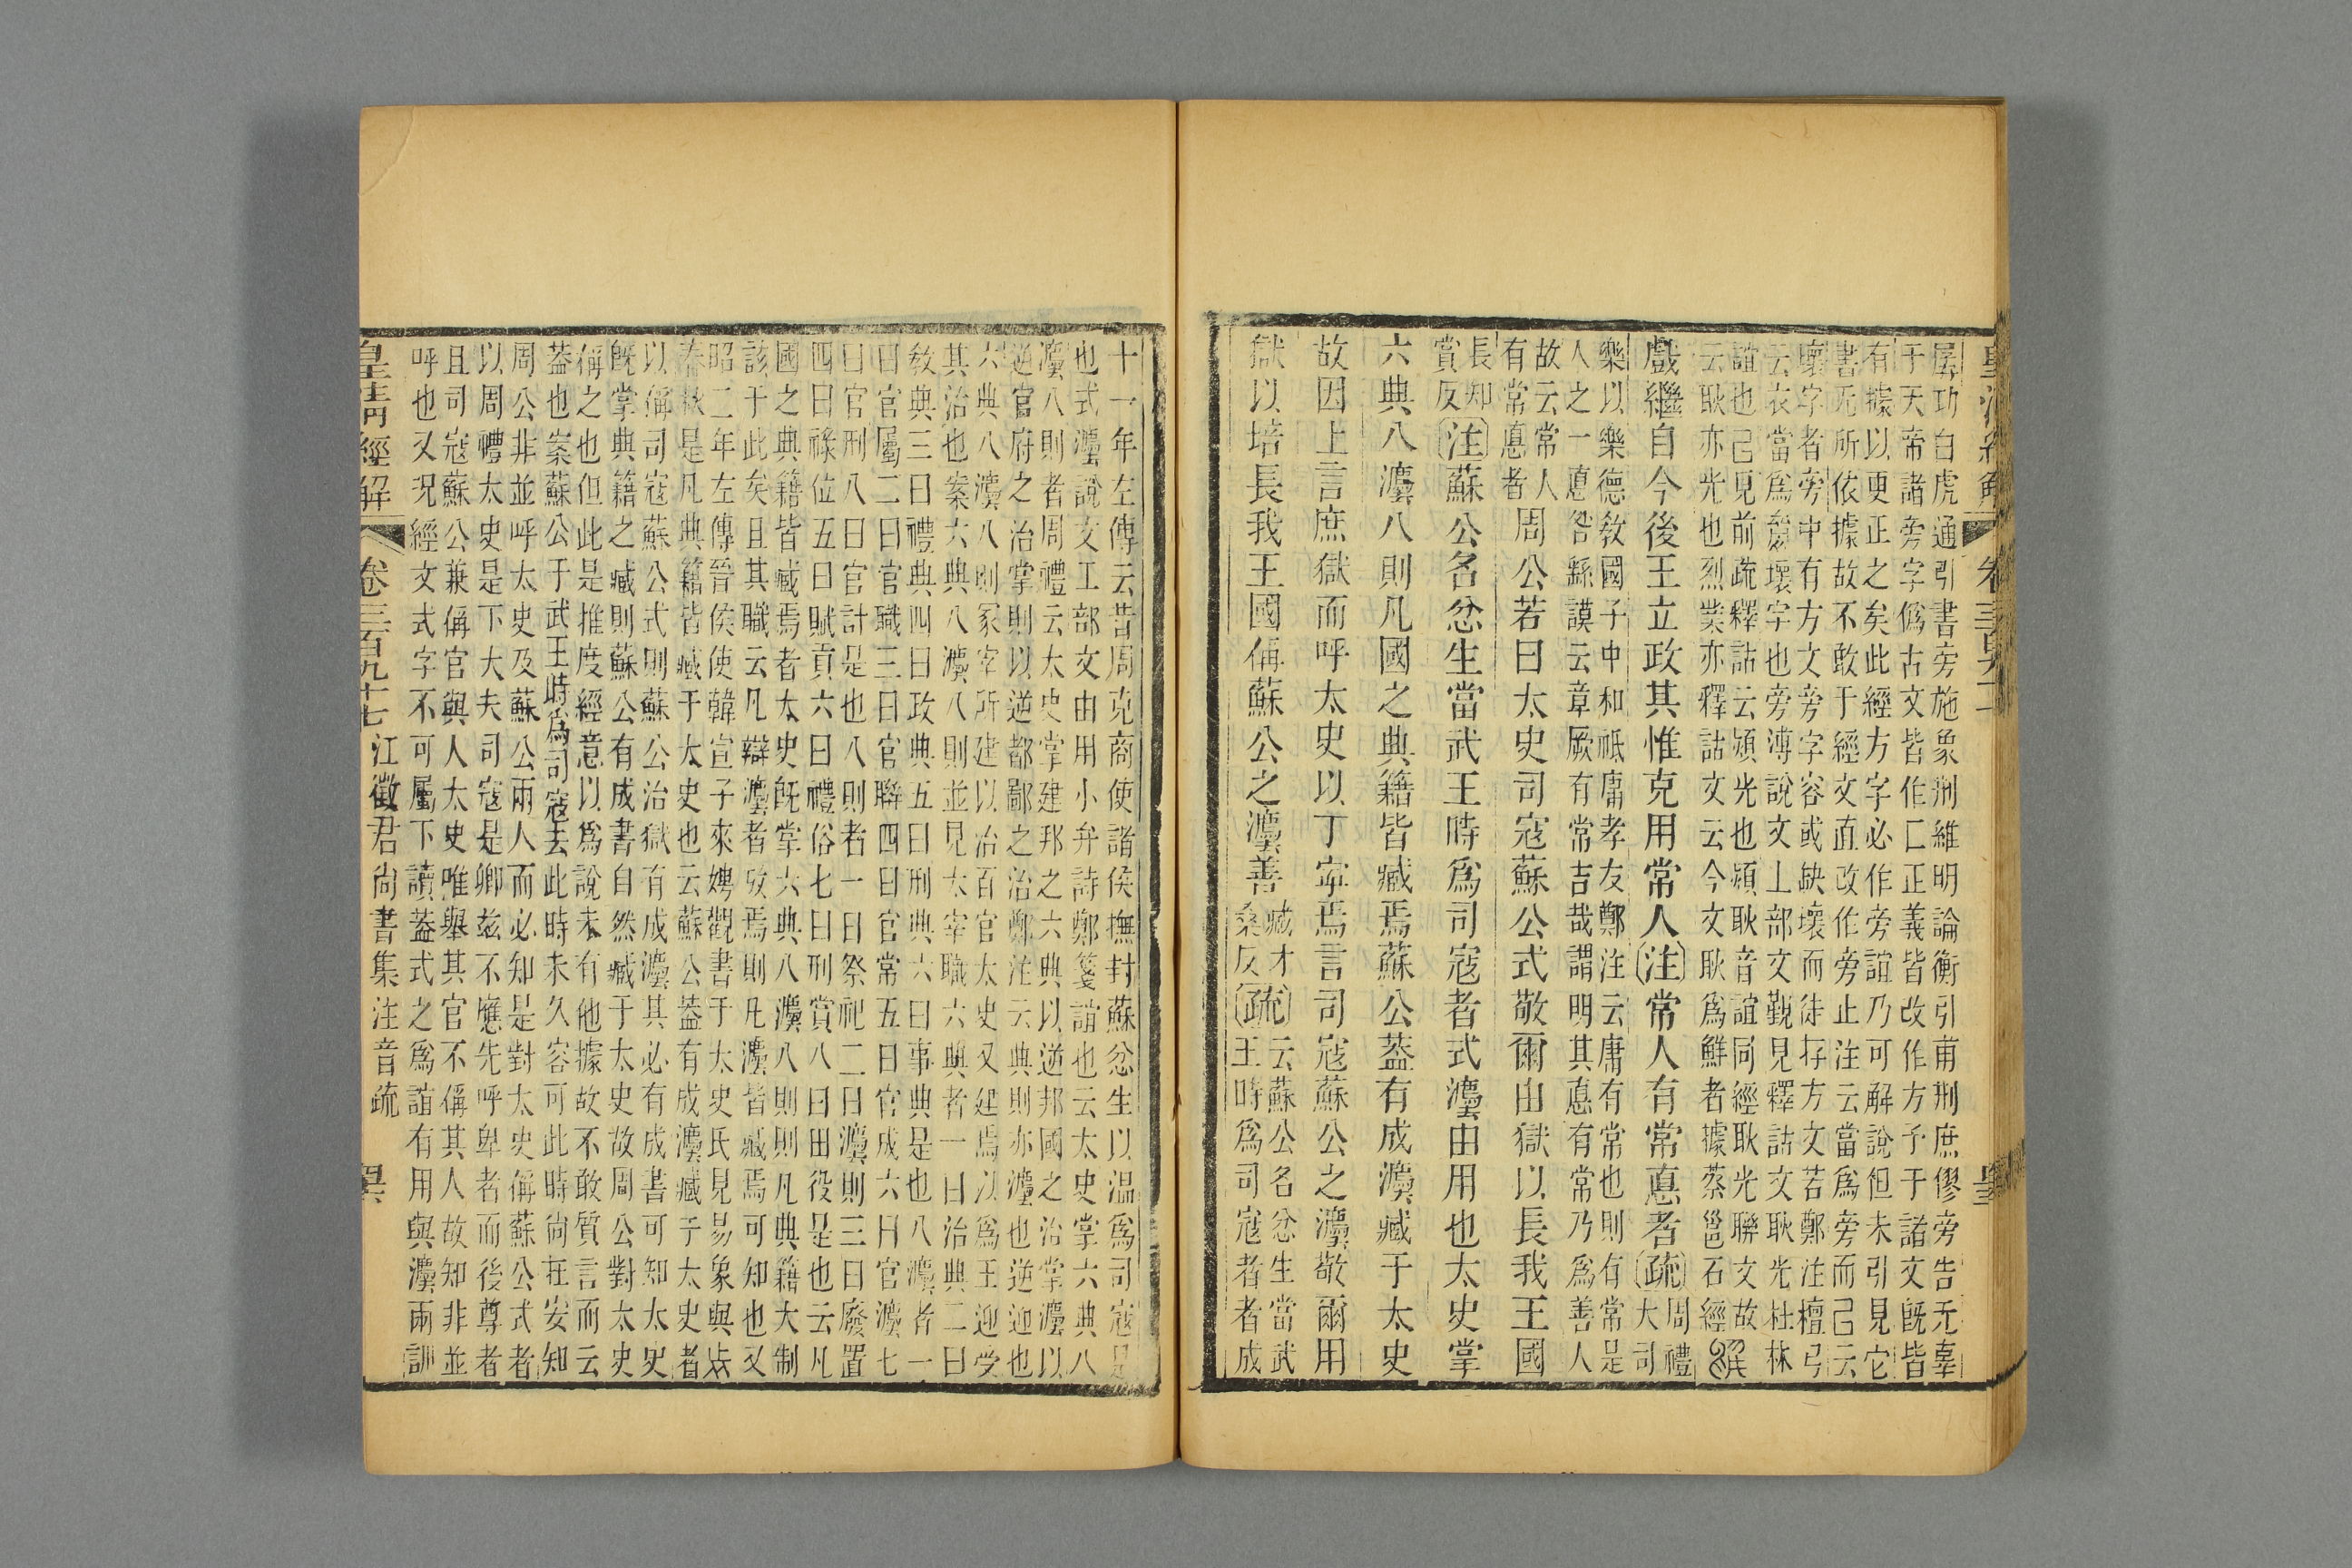 孱功白虎通引書旁施象刑維明論衡引甫刑庶僇旁告无辜
于天帝諸旁字僞古文皆作匚正義皆改作方予于諸文旣皆
有據以更正之矣此經方字必作旁誼乃可解說但未引見它
書无所依據故不敢于經文直改作旁止注云當爲旁而己云
壞字者旁中有方文旁字容或缺壞而徒存方文若鄭注檀弓
云衣當爲齎壞字也旁溥說文丄部文觀見釋詁文耿光杜林
誼也己見前疏釋詁云熲光也熲耿音誼同經耿光聯文故解
云耿亦光也烈業亦釋詁文云今文耿爲鮮者據蔡邕石經
戲繼自今後王立政其惟克用常人注常人有常悳者疏周禮大司
樂以樂德敎國子中和祗庸孝友鄭注云庸有常也則有常是
人之一悳咎繇謨云章厥有常吉哉謂明其悳有常乃爲善人
故云常人有常悳者周公若曰太史司寇蘇公式敬爾由獄以長我王國
長知賞反注蘇公名忿生當武王時爲司寇者式灋由用也太史掌
六典八灋八則凡國之典籍皆臧焉蘇公葢有成灋臧于太史
故因上言庶獄而呼太史以丁寧焉言司寇蘇公之灋敬爾用
獄以培長我王國偁蘇公之灋善臧才桑反疏云蘇公名忿生當武王時爲司寇者者成
十一年左傳云昔周克商使諸侯撫封蘇忿生以温爲司寇是
也式灋說文工部文由用小弁詩鄭箋誼也云太史掌六典八
灋八則者周禮云太史掌建邦之六典以逆邦國之治掌灋以
逆官府之治掌則以逆都鄙之治鄭注云典則亦灋也逆迎也
六典八灋八則冢宰所建以治百官太史又建焉以爲王迎受
其治也案六典八灋八則並見太宰職六典者一曰治典二曰
敎典三曰禮典四曰政典五曰刑典六曰事典是也八灋者一
曰官屬二曰官職三曰官聯四曰官常五曰官成六曰官灋七
曰官刑八曰官計是也八則者一曰祭祀二曰灋則三曰廢置
四曰祿位五曰賦貢六曰禮俗七曰刑賞八曰田役是也云凡
國之典籍皆臧焉者太史旣掌六典八灋八則則凡典籍大制
該于此矣且其職云凡辯灋者攷焉則凡灋皆臧焉可知也又
昭二年左傳晉侯使韓宣子來娉觀書于太史氏見易象與
春秋是凡典籍皆臧于太史也云蘇公葢有成灋臧于太史者
以偁司寇蘇公式則蘇公治獄有成灋其必有成書可知太史
旣掌典籍之臧則蘇公有成書自然臧于太史故周公對太史
稱之也但此是推度經意以爲說未有他據故不敢質言而云
葢也案蘇公于武王時爲司寇去此時未久容可此時尙在安知
周公非並呼太史及蘇公兩人而必知是對太史稱蘇公式者
以周禮太史是下大夫司寇是卿兹不應先呼卑者而後尊者
且司寇蘇公兼偁官與人太史唯舉其官不稱其人故知非並
呼也又况經文式字不可屬下讀葢式之爲誼有用與灋兩訓
皇淸經解 卷三百九十七 江徵君尙書集注音疏